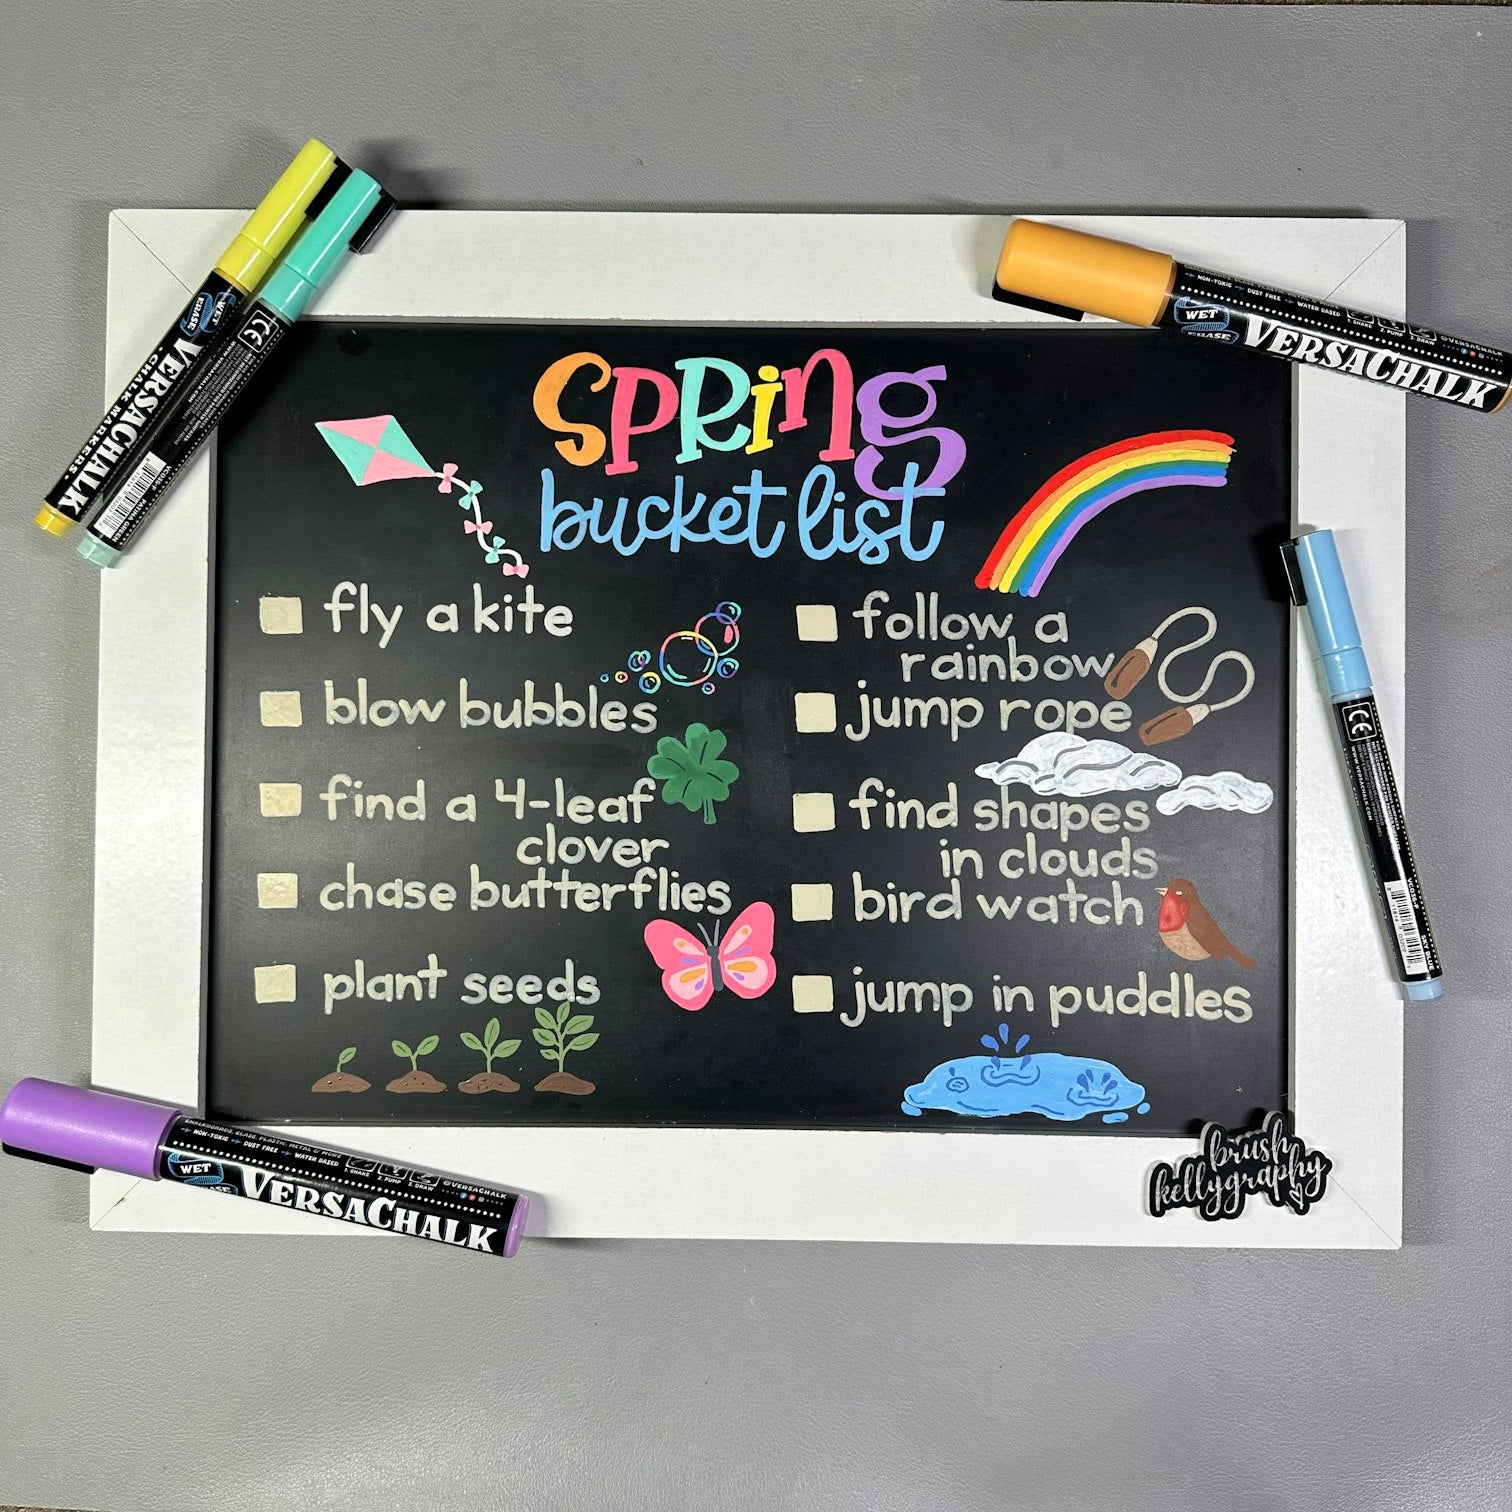 SPRING
bucket list
fly a kite
blow bubbles
find a 4-leaf
clover
chase butterflies
plant seeds
follow a
rainbow
jump rope
find shapes
in clouds
bird watch
jump in puddles
WET
ERASE
VERSACHALK
CHALK MARKERS
CE
NON-TOXIC DUST FREE WATER BASED
1. SHAKE 2. PUMP 3. DRAW
@VERSACHALK
WET
ERASE
VERSACHALK
CE
CHALKBOARDS, GLASS, PLASTIC, METAL & MORE
NON-TOXIC DUST FREE WATER BASED
1. SHAKE 2. PUMP 3. DRAW
@VERSACHALK
WET
VERSACHALK
brush
kellygraphy